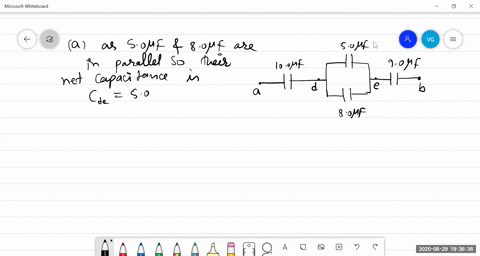 Microsoft Whiteboard
VG
(a) as 5.0μF & 8.0μF are
in parallel so their
net capacitance is
C_de = 5.0
5.0μF
10.0μF
9.0μF
a
d
e
b
8.0μF
2020-08-29 19:36:36